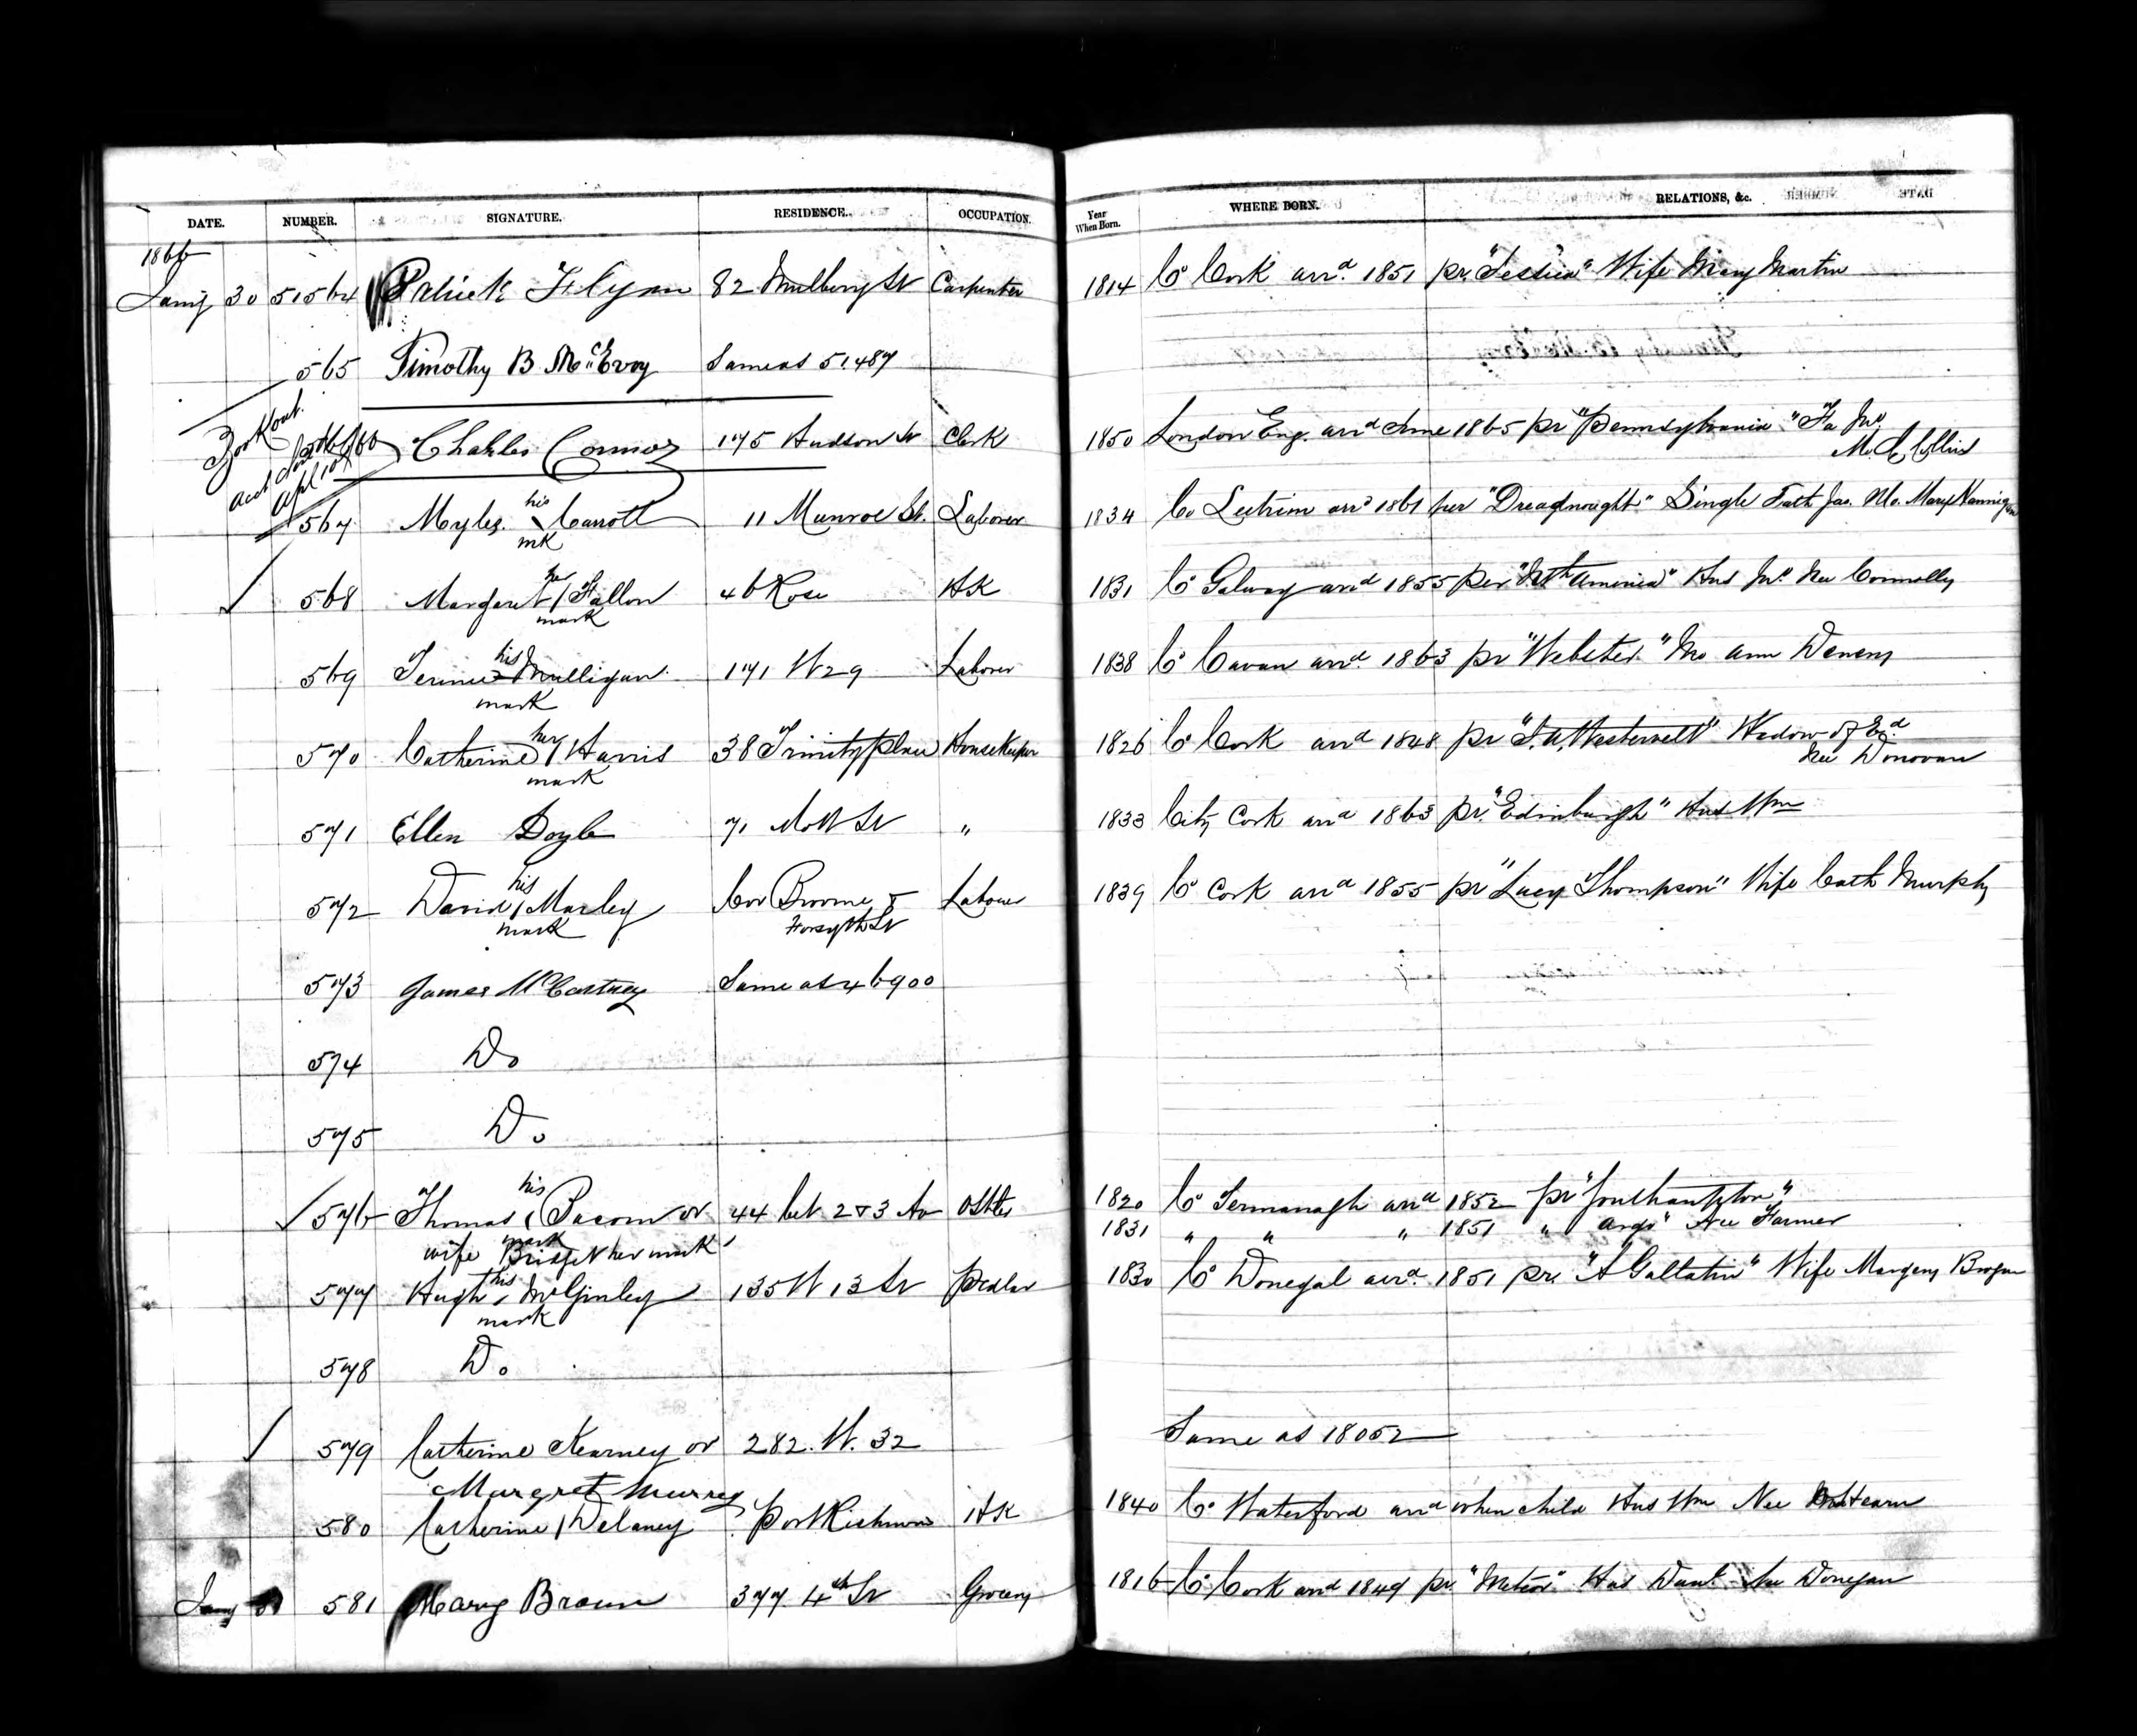 DATE. NUMBER. SIGNATURE. RESIDENCE. OCCUPATION. Year When Born. WHERE BORN. RELATIONS, &c.
1866
Jany 30 51564 Patrick Flynn 82 Mulberry St Carpenter 1814 Co Cork arrd 1851 pr "Jessica" Wife Mary Martin
565 Timothy B McEvoy Same as 51.487
Book out.
Acct
Apl
Charles Connor 175 Hudson St Clerk 1850 London Eng. arrd June 1865 pr "Pennsylvania" Fa Jno
Mo Collins
567 Myles his Carroll 11 Munroe St. Laborer 1834 Co Leitrim arrd 1861 per "Dreadnought" Single Fath Jas. Mo. Mary Hannigan
mk
568 Margaret her Fallon 46 Rose HK 1831 Co Galway arrd 1855 per "Nth America" Hus Jno Nee Connolly
mark
569 his Mulligan 171 W 29 Laborer 1838 Co Cavan arrd 1863 pr "Webster" Mo Ann
mark
570 Catherine her Harris 38 Trinity place Housekeeper 1826 Co Cork arrd 1848 pr "J. A. Westervelt" Widow of Ed.
mark Nee Donovan
571 Ellen Doyle 71 Mott St " 1833 City Cork arrd 1863 pr "Edinburgh" Hus Wm
572 David his Marley Cor Broome & Laborer 1839 Co Cork arrd 1855 pr "Lucy Thompson" Wife Cath Murphy
mark Forsyth St
573 James McCartney Same as 46900
574 Do
575 Do
576 Thomas his or 44 bet 2 & 3 Av Ostler 1820 Co Fermanagh arrd 1852 pr "Southampton"
mark 1831 " " " 1851 " Argo" Nee Farmer
wife Bridget her mark
577 Hugh his McGinley 135 W 13 St Pedlar 1830 Co Donegal arrd. 1851 pr. "A Gallatin" Wife Margery Brogan
mark
578 Do
579 Catherine Kearney or 282. W. 32 Same as 18052
Margret Murrey
580 Catherine Delaney Port Richmond HK 1840 Co Waterford arrd when child Hus Wm Nee Hearn
Jany 31 581 Mary Braun 377 4th St Grocery 1816 Co Cork arrd 1849 pr. "Meteor" Hus Danl Nee Donegan